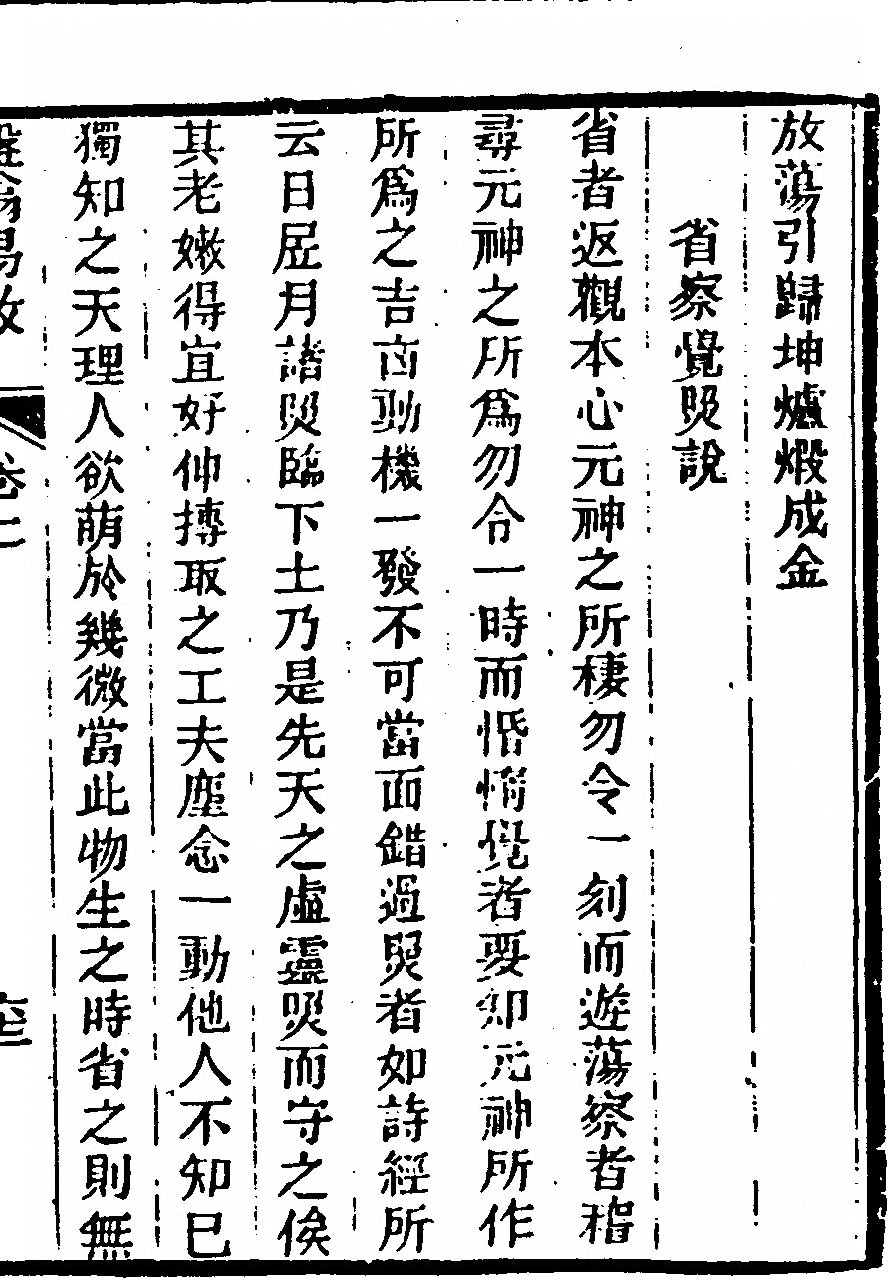 放蕩引歸坤爐煅成金
省察覺照說
省者返觀本心元神之所棲勿令一刻而遊蕩察者稽
尋元神之所爲勿令一時而惛惰覺者要知元神所作
所爲之吉凶動機一發不可當面錯過照者如詩經所
云日居月諸照臨下土乃是先天之虛靈照而守之俟
其老嫩得宜好仲摶取之工夫塵念一動他人不知已
獨知之天理人欲萌於幾微當此物生之時省之則無